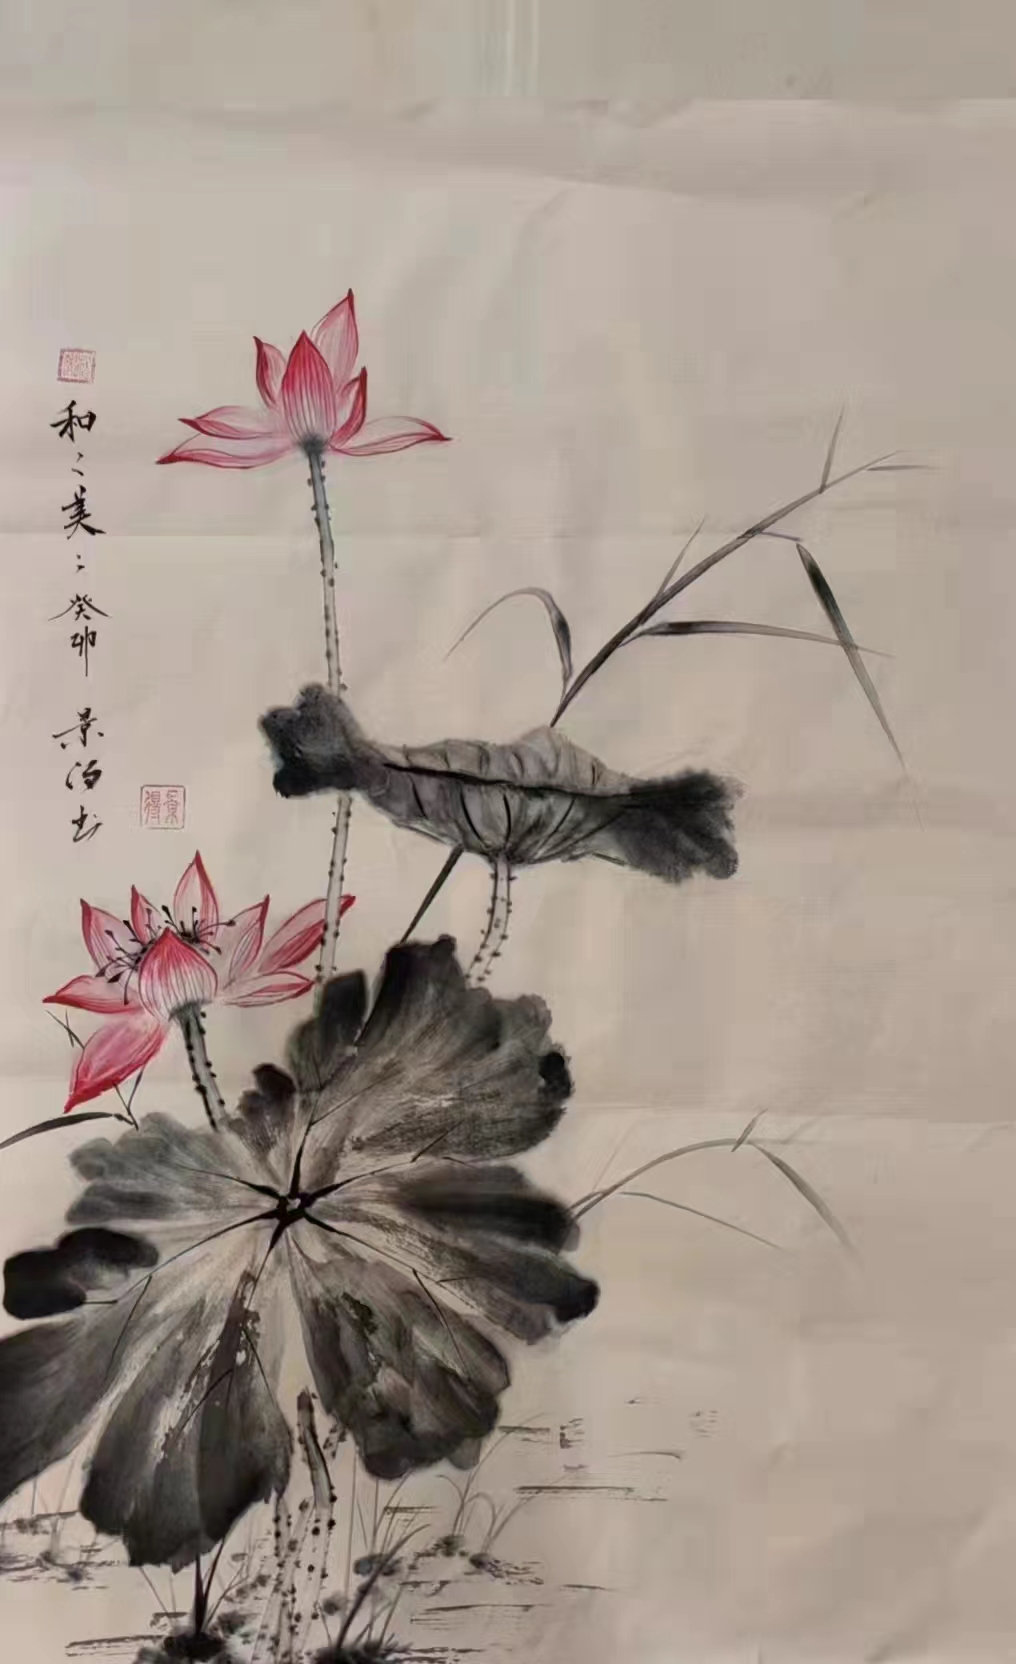 和〻美〻癸卯 景得书
景得